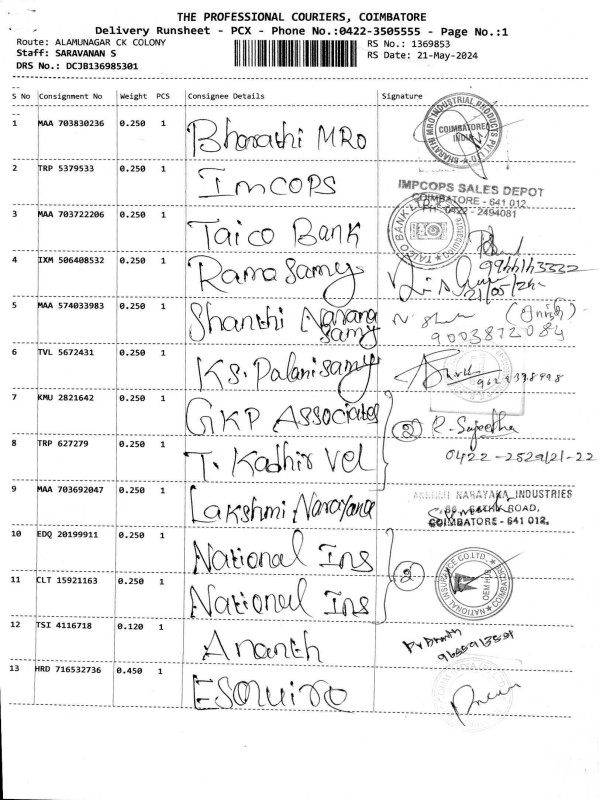 THE PROFESSIONAL COURIERS, COIMBATORE
Delivery Runsheet - PCX - Phone No.:0422-3505555 - Page No.:1
Route: ALAMUNAGAR CK COLONY
RS No.: 1369853
Staff: SARAVANAN S
RS Date: 21-May-2024
DRS No.: DCJB136985301
S No Consignment No Weight PCS Consignee Details Signature
1 MAA 703830236 0.250 1 Bharathi MRO
BHARATHI MRO INDUSTRIAL PRODUCTS PVT LTD
COIMBATORE
INDIA
2 TRP 5379533 0.250 1 Imcops
IMPCOPS SALES DEPOT
COIMBATORE - 641 012
PH : 0422 - 2494081
3 MAA 703722206 0.250 1 Taico Bank
TAICO BANK LTD
COIMBATORE
4 IXM 506408532 0.250 1 Rama Samy
21/05/24
5 MAA 574033983 0.250 1 Shanthi Narana Samy
9003872084
6 TVL 5672431 0.250 1 KS. Palanisamy
7 KMU 2821642 0.250 1 GKP Associates
2 R. Sujeetha
8 TRP 627279 0.250 1 T. Kadhir Vel
0422-2529121-22
9 MAA 703692047 0.250 1 Lakshmi Narayana
LAKSHMI NARAYANA INDUSTRIES
ROAD,
COIMBATORE - 641 012.
10 EDQ 20199911 0.250 1 National Ins
2
NATIONAL INSURANCE CO. LTD.
COIMBATORE
11 CLT 15921163 0.250 1 National Ins
12 TSI 4116718 0.120 1 Ananth
13 HRD 716532736 0.450 1 Esquiro